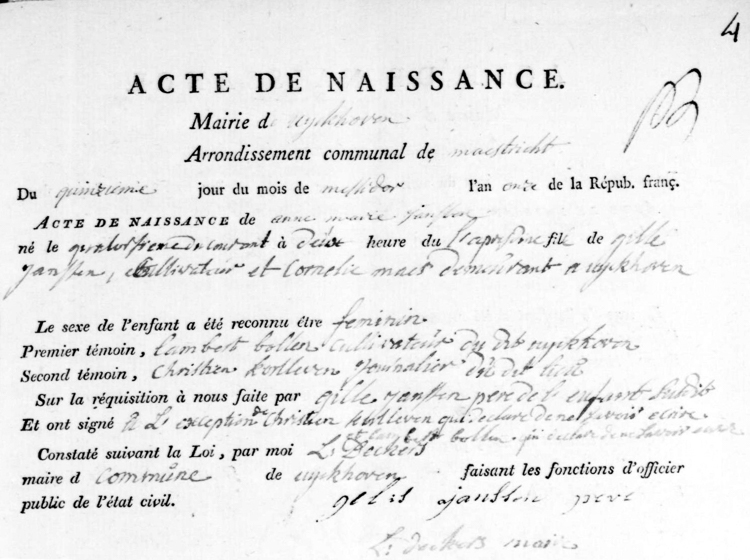 4
ACTE DE NAISSANCE.
Mairie d uykhoven
Arrondissement communal de maestricht
Du quinzieme jour du mois de messidor l'an onze de la Répub. franç.
ACTE DE NAISSANCE de anne marie janssen
né le quatorsieme du courant à deux heure du fil de gille
janssen, cultivateur et Cornelie maes demeurant a uykhoven
Le sexe de l'enfant a été reconnu être feminin
Premier témoin, lambert bollen cultivateur du dit uykhoven
Second témoin, Christien Kortleven journalier du dit lieu
Sur la réquisition à nous faite par gille janssen pere de l'enfant susdit
Et ont signé A L'exception de Christien Kortleven qui declare de ne savoir ecrire
et lambert bollen qui declare de ne savoir ecrire
Constaté suivant la Loi, par moi L. Deckers
maire d commune de uykhoven faisant les fonctions d'officier
public de l'état civil. gelis janssen pere
L. deckers maire